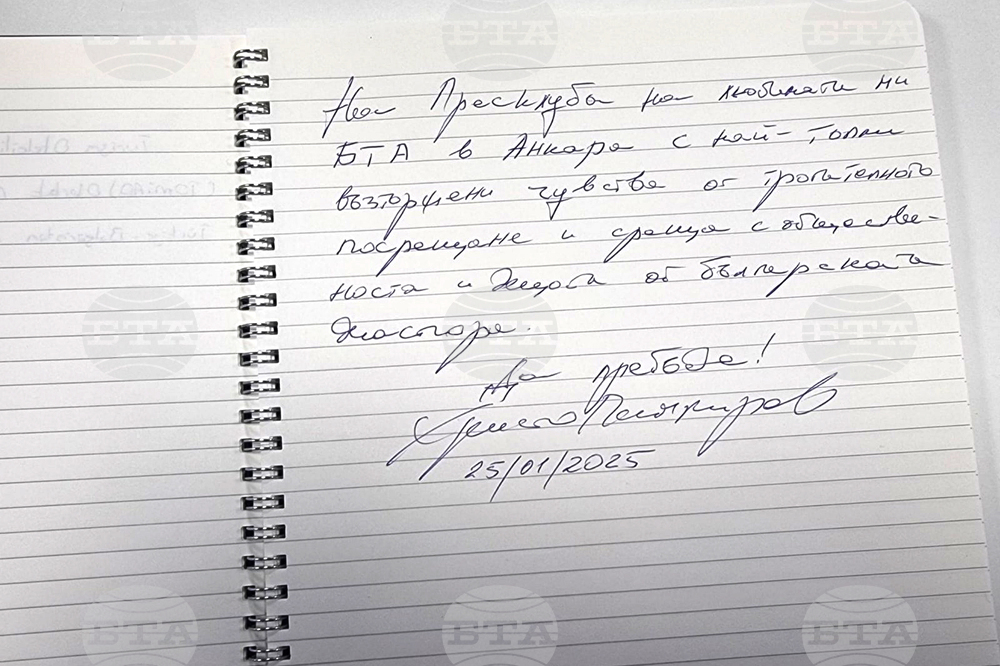 На Пресклуба на любимата ни
БТА в Анкара с най-топли
възторжени чувства от трогателното
посрещане и среща с обществе-
ността и хората от българската
диаспора.
Да пребъде!
Христо
25/01/2025
БТА